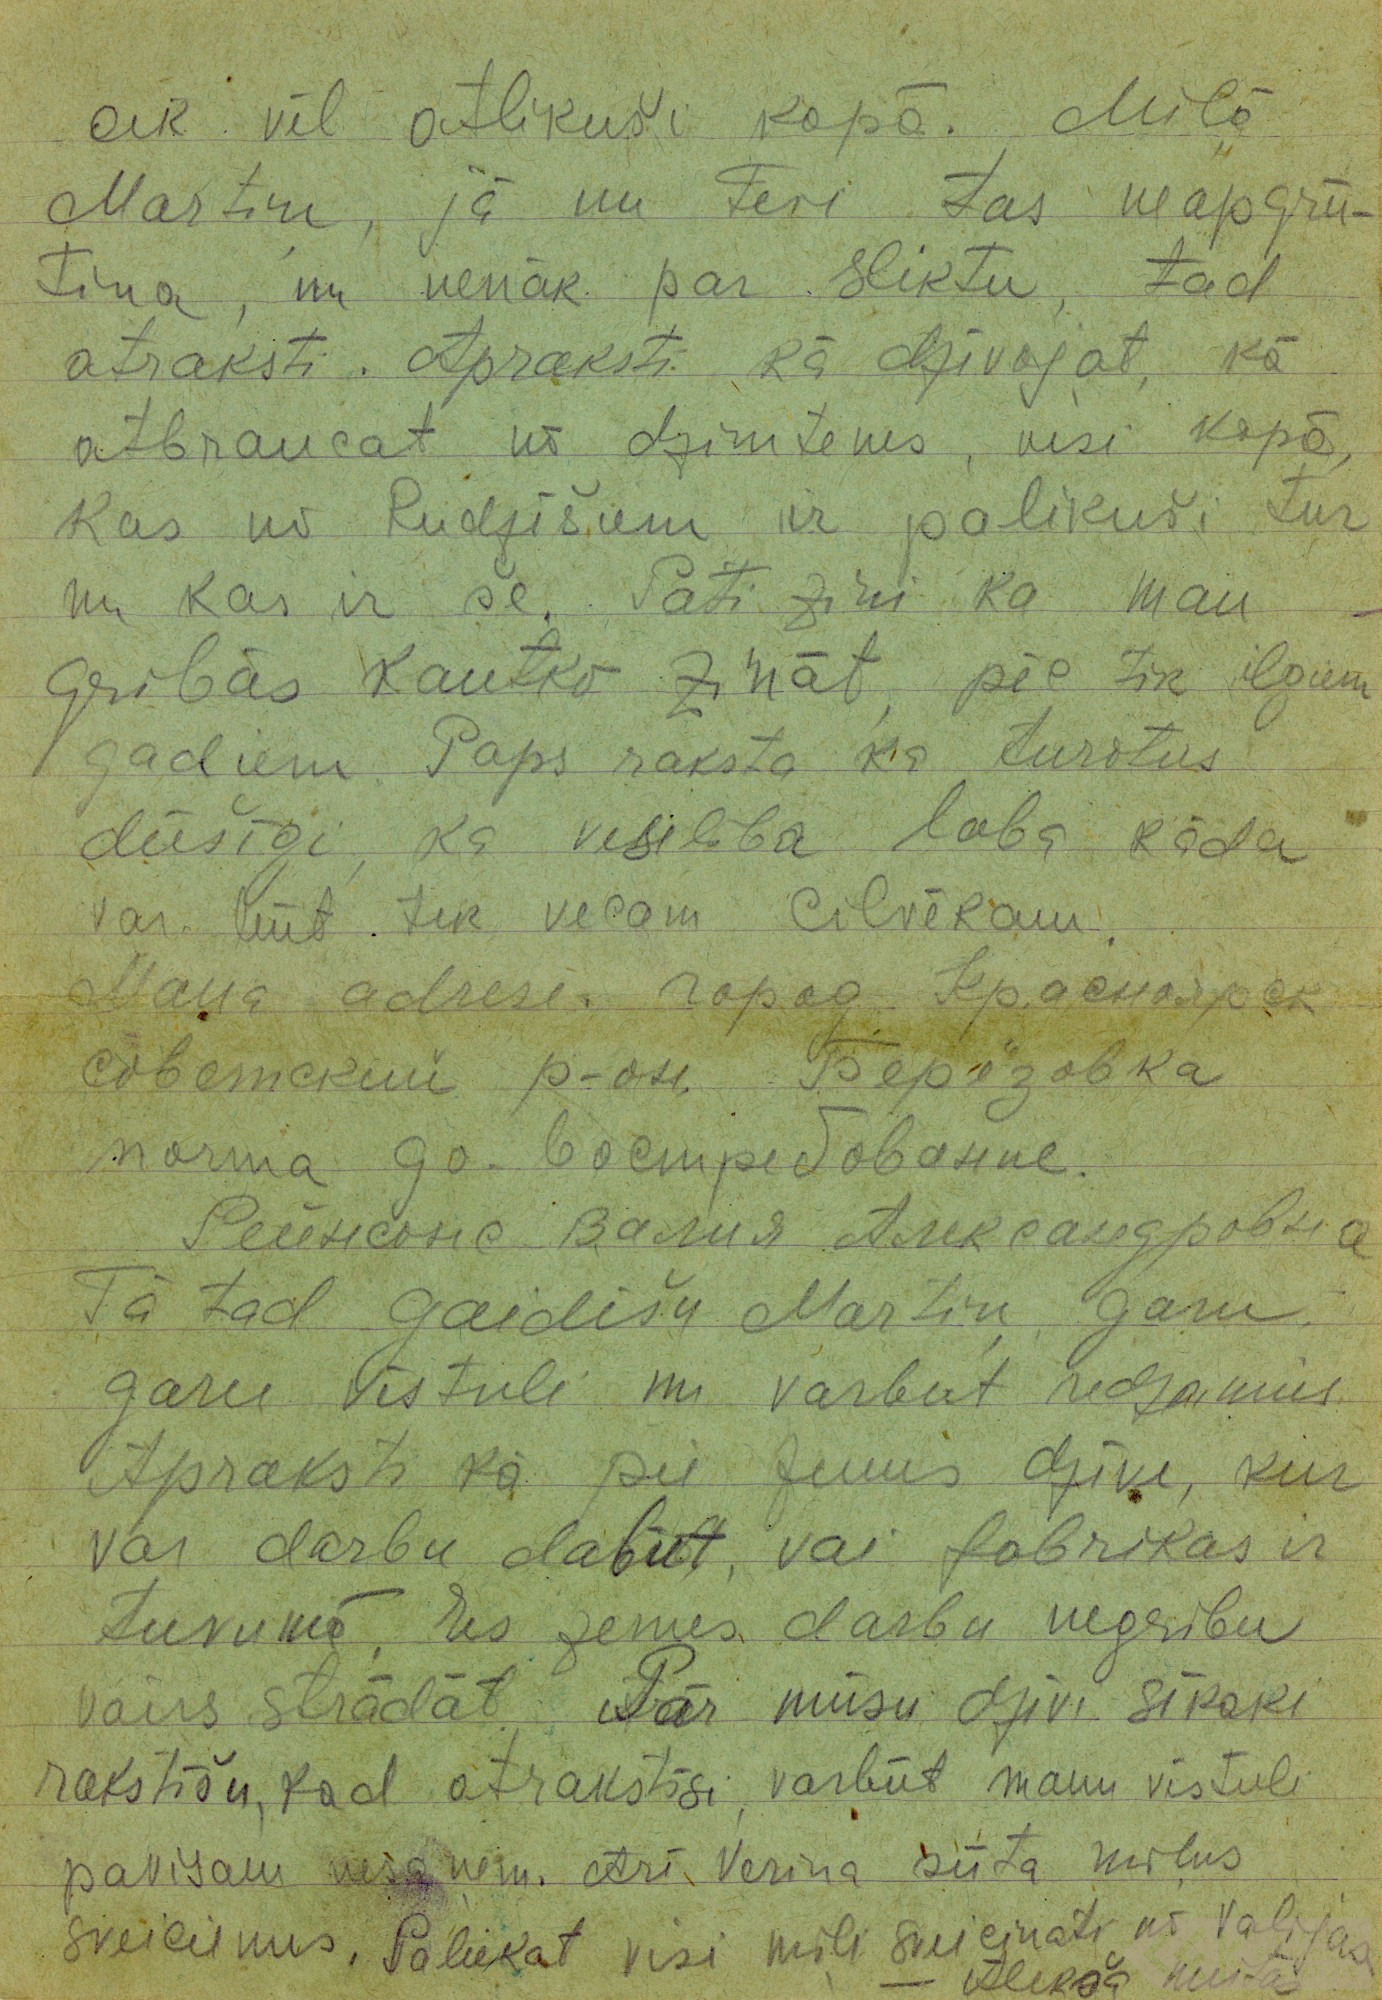 cik vēl atlikuši kopā. Mīļā
Martiņ, jā nu Tevi tas neapgrū-
tina, un nenāk par sliktu, tad
atraksti. Apraksti kā dzīvojat, kā
atbraucat no dzimtenes, visi kopā,
kas no Rudzīšiem ir palikuši tur
un kas ir še. Pati zini ka man
gribās kautko zināt, pēc tik ilgiem
gadiem. Paps raksta ka turotus
dūšīgi, ka veselība laba kāda
var būt tik vecam cilvēkam.
Mana adrese. город Красноярск
советский р-он. Берёзовка
почта до востребование.
Рейнсонс Валия Александровна
Tā tad gaidīšu Martiņ garu
garu vēstuli un varbūt redzamies
Apraksti kā pie Jums dzīve, kur
var darbu dabūt, vai fabrikas ir
tuvumā. Es zemes darbu negribu
vairs strādāt. Par mūsu dzīvi sīkāki
rakstīšu, kad atrakstīsi, varbūt manu vēstuli
pavisam nesaņem. Arī Veriņa sūta mīļus
sveicienus. Paliekat visi mīļi sveicināti no Valijas
— Aleksa meitas